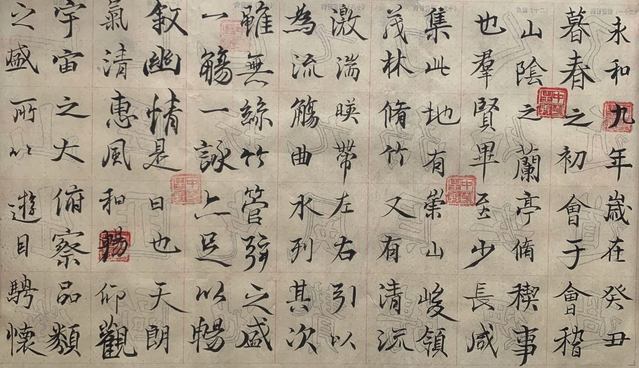 永和九年歲在癸丑
暮春之初會于會稽
山陰之蘭亭脩禊事
也羣賢畢至少長咸
集此地有崇山峻領
茂林脩竹又有清流
激湍暎帶左右引以
為流觴曲水列其次
雖無絲竹管弦之盛
一觴一詠亦足以暢
敘幽情是日也天朗
氣清惠風和暢仰觀
宇宙之大俯察品類
之盛所以遊目騁懷